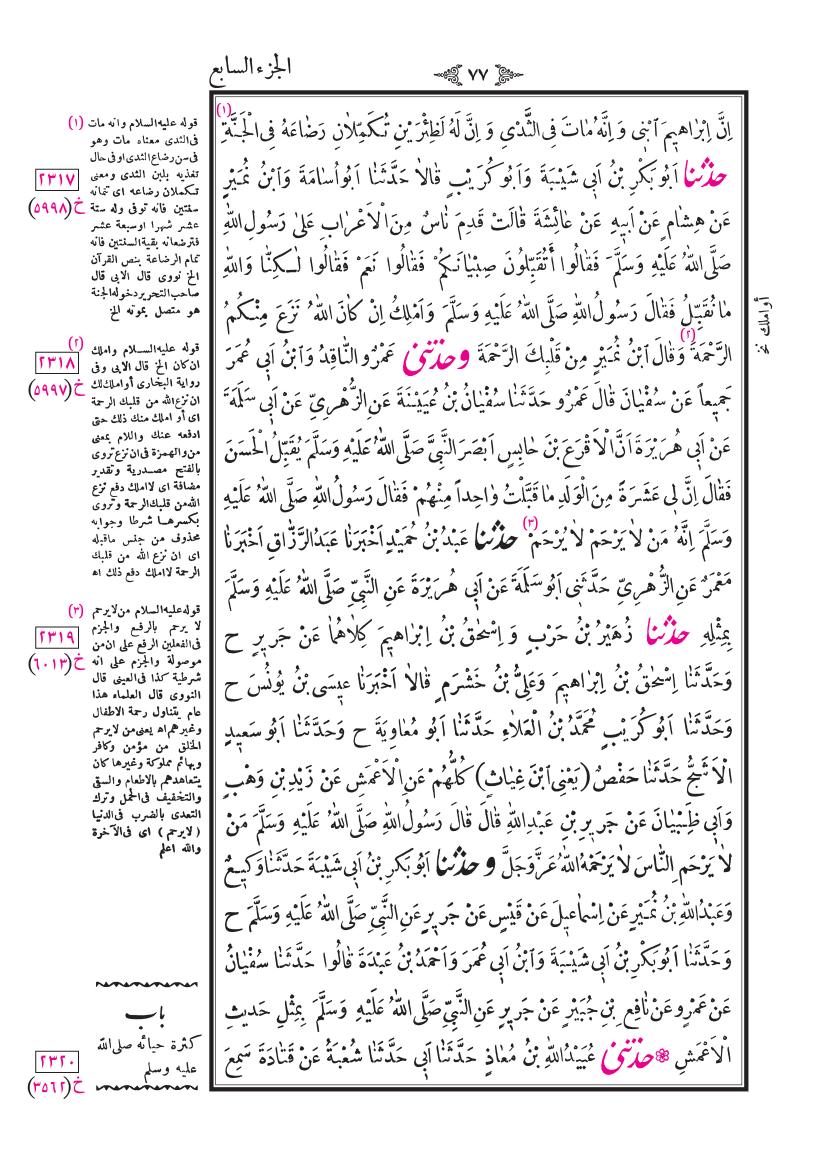 الجزء السابع
٧٧
اِنَّ اِبْرٰاهِيمَ اَبْنِي وَ اِنَّهُ مٰاتَ فِى الثَّدْىِ وَ اِنَّ لَهُ لَظِئْرَيْنِ تُكَمِّلٰانِ رَضٰاعَهُ فِى الْجَنَّةِ (١)
حدثنا اَبُو بَكْرِ بْنُ اَبِي شَيْبَةَ وَاَبُو كُرَيْبٍ قٰالاٰ حَدَّثَنٰا اَبُو اُسٰامَةَ وَابْنُ نُمَيْرٍ
عَنْ هِشٰامٍ عَنْ اَبِيهِ عَنْ عٰائِشَةَ قٰالَتْ قَدِمَ نٰاسٌ مِنَ الْاَعْرٰابِ عَلىٰ رَسُولِ اللّٰهِ
صَلَّى اللّٰهُ عَلَيْهِ وَسَلَّمَ فَقٰالُوا أَتُقَبِّلُونَ صِبْيٰانَكُمْ فَقٰالُوا نَعَمْ فَقٰالُوا لٰكِنّٰا وَاللّٰهِ
مٰا نُقَبِّلُ فَقٰالَ رَسُولُ اللّٰهِ صَلَّى اللّٰهُ عَلَيْهِ وَسَلَّمَ وَاَمْلِكُ اِنْ كٰانَ اللّٰهُ نَزَعَ مِنْكُمُ
الرَّحْمَةَ (٢) وَقٰالَ ابْنُ نُمَيْرٍ مِنْ قَلْبِكَ الرَّحْمَةَ وحدثنى عَمْرٌو النّٰاقِدُ وَابْنُ اَبِي عُمَرَ
جَمِيعاً عَنْ سُفْيٰانَ قٰالَ عَمْرٌو حَدَّثَنٰا سُفْيٰانُ بْنُ عُيَيْنَةَ عَنِ الزُّهْرِيِّ عَنْ اَبِي سَلَمَةَ
عَنْ اَبِي هُرَيْرَةَ اَنَّ الْاَقْرَعَ بْنَ حٰابِسٍ اَبْصَرَ النَّبِيَّ صَلَّى اللّٰهُ عَلَيْهِ وَسَلَّمَ يُقَبِّلُ الْحَسَنَ
فَقٰالَ اِنَّ لِي عَشَرَةً مِنَ الْوَلَدِ مٰا قَبَّلْتُ وٰاحِداً مِنْهُمْ فَقٰالَ رَسُولُ اللّٰهِ صَلَّى اللّٰهُ عَلَيْهِ
وَسَلَّمَ اِنَّهُ مَنْ لاٰ يَرْحَمْ لاٰ يُرْحَمْ (٣) حدثنا عَبْدُ بْنُ حُمَيْدٍ اَخْبَرَنٰا عَبْدُ الرَّزّٰاقِ اَخْبَرَنٰا
مَعْمَرٌ عَنِ الزُّهْرِيِّ حَدَّثَنِي اَبُو سَلَمَةَ عَنْ اَبِي هُرَيْرَةَ عَنِ النَّبِيِّ صَلَّى اللّٰهُ عَلَيْهِ وَسَلَّمَ
بِمِثْلِهِ حدثنا زُهَيْرُ بْنُ حَرْبٍ وَ اِسْحٰقُ بْنُ اِبْرٰاهِيمَ كِلاٰهُمٰا عَنْ جَرِيرٍ ح
وَحَدَّثَنٰا اِسْحٰقُ بْنُ اِبْرٰاهِيمَ وَعَلِيُّ بْنُ خَشْرَمٍ قٰالاٰ اَخْبَرَنٰا عِيسَى بْنُ يُونُسَ ح
وَحَدَّثَنٰا اَبُو كُرَيْبٍ مُحَمَّدُ بْنُ الْعَلاٰءِ حَدَّثَنٰا اَبُو مُعٰاوِيَةَ ح وَحَدَّثَنٰا اَبُو سَعِيدٍ
الْاَشَجُّ حَدَّثَنٰا حَفْصٌ (يَعْنِى ابْنَ غِيٰاثٍ) كُلُّهُمْ عَنِ الْاَعْمَشِ عَنْ زَيْدِ بْنِ وَهْبٍ
وَاَبِي ظِبْيٰانَ عَنْ جَرِيرِ بْنِ عَبْدِ اللّٰهِ قٰالَ قٰالَ رَسُولُ اللّٰهِ صَلَّى اللّٰهُ عَلَيْهِ وَسَلَّمَ مَنْ
لاٰ يَرْحَمِ النّٰاسَ لاٰ يَرْحَمْهُ اللّٰهُ عَزَّ وَجَلَّ وحدثنا اَبُو بَكْرِ بْنُ اَبِي شَيْبَةَ حَدَّثَنٰا وَكِيعٌ
وَعَبْدُ اللّٰهِ بْنُ نُمَيْرٍ عَنْ اِسْمٰاعِيلَ عَنْ قَيْسٍ عَنْ جَرِيرٍ عَنِ النَّبِيِّ صَلَّى اللّٰهُ عَلَيْهِ وَسَلَّمَ ح
وَحَدَّثَنٰا اَبُو بَكْرِ بْنُ اَبِي شَيْبَةَ وَابْنُ اَبِي عُمَرَ وَاَحْمَدُ بْنُ عَبْدَةَ قٰالُوا حَدَّثَنٰا سُفْيٰانُ
عَنْ عَمْرٍو عَنْ نٰافِعِ بْنِ جُبَيْرٍ عَنْ جَرِيرٍ عَنِ النَّبِيِّ صَلَّى اللّٰهُ عَلَيْهِ وَسَلَّمَ بِمِثْلِ حَدِيثِ
الْاَعْمَشِ ❁ حدثنى عُبَيْدُ اللّٰهِ بْنُ مُعٰاذٍ حَدَّثَنٰا اَبِي حَدَّثَنٰا شُعْبَةُ عَنْ قَتٰادَةَ سَمِعَ
أو املك نخ
(١) قوله عليه السلام وانه مات
فى الثدى معناه مات وهو
فى سن رضاع الثدى او فى حال
تغذيه بلبن الثدى ومعنى
تكملان رضاعه اى تتمانه
سنتين فانه توفى وله ستة
عشر شهرا او سبعة عشر
فترضعانه بقية السنتين فانه
تمام الرضاعة بنص القرآن
الخ نووى قال الابى قال
صاحب التحرير دخوله الجنة
هو متصل بموته الخ
(٢) قوله عليه السلام واملك
ان كان الخ قال الابى وفى
رواية البخارى أو املك لك
ان نزع الله من قلبك الرحمة
اى أو املك منك ذلك حتى
ادفعه عنك واللام بمعنى
من والهمزة فى ان نزع تروى
بالفتح مصدرية وتقدير
مضافة اى لا املك دفع نزع
الله من قلبك الرحمة وتروى
بكسرها شرطا وجوابه
محذوف من جنس ما قبله
اى ان نزع الله من قلبك
الرحمة لا املك دفع ذلك اه
(٣) قوله عليه السلام من لا يرحم
لا يرحم بالرفع والجزم
فى الفعلين الرفع على ان من
موصولة والجزم على انه
شرطية كذا فى العينى قال
النووى قال العلماء هذا
عام يتناول رحمة الاطفال
وغيرهم اه يعنى من لا يرحم
الخلق من مؤمن وكافر
وبهائم مملوكة وغيرها كان
يتعاهدهم بالاطعام والسقى
والتخفيف فى الحمل وترك
التعدى بالضرب فى الدنيا
(لا يرحم) اى فى الآخرة
والله اعلم
باب
كثرة حيائه صلى الله
عليه وسلم
٢٣١٧
خ (٥٩٩٨)
٢٣١٨
خ (٥٩٩٧)
٢٣١٩
خ (٦٠١٣)
٢٣٢٠
خ (٣٥٦٢)